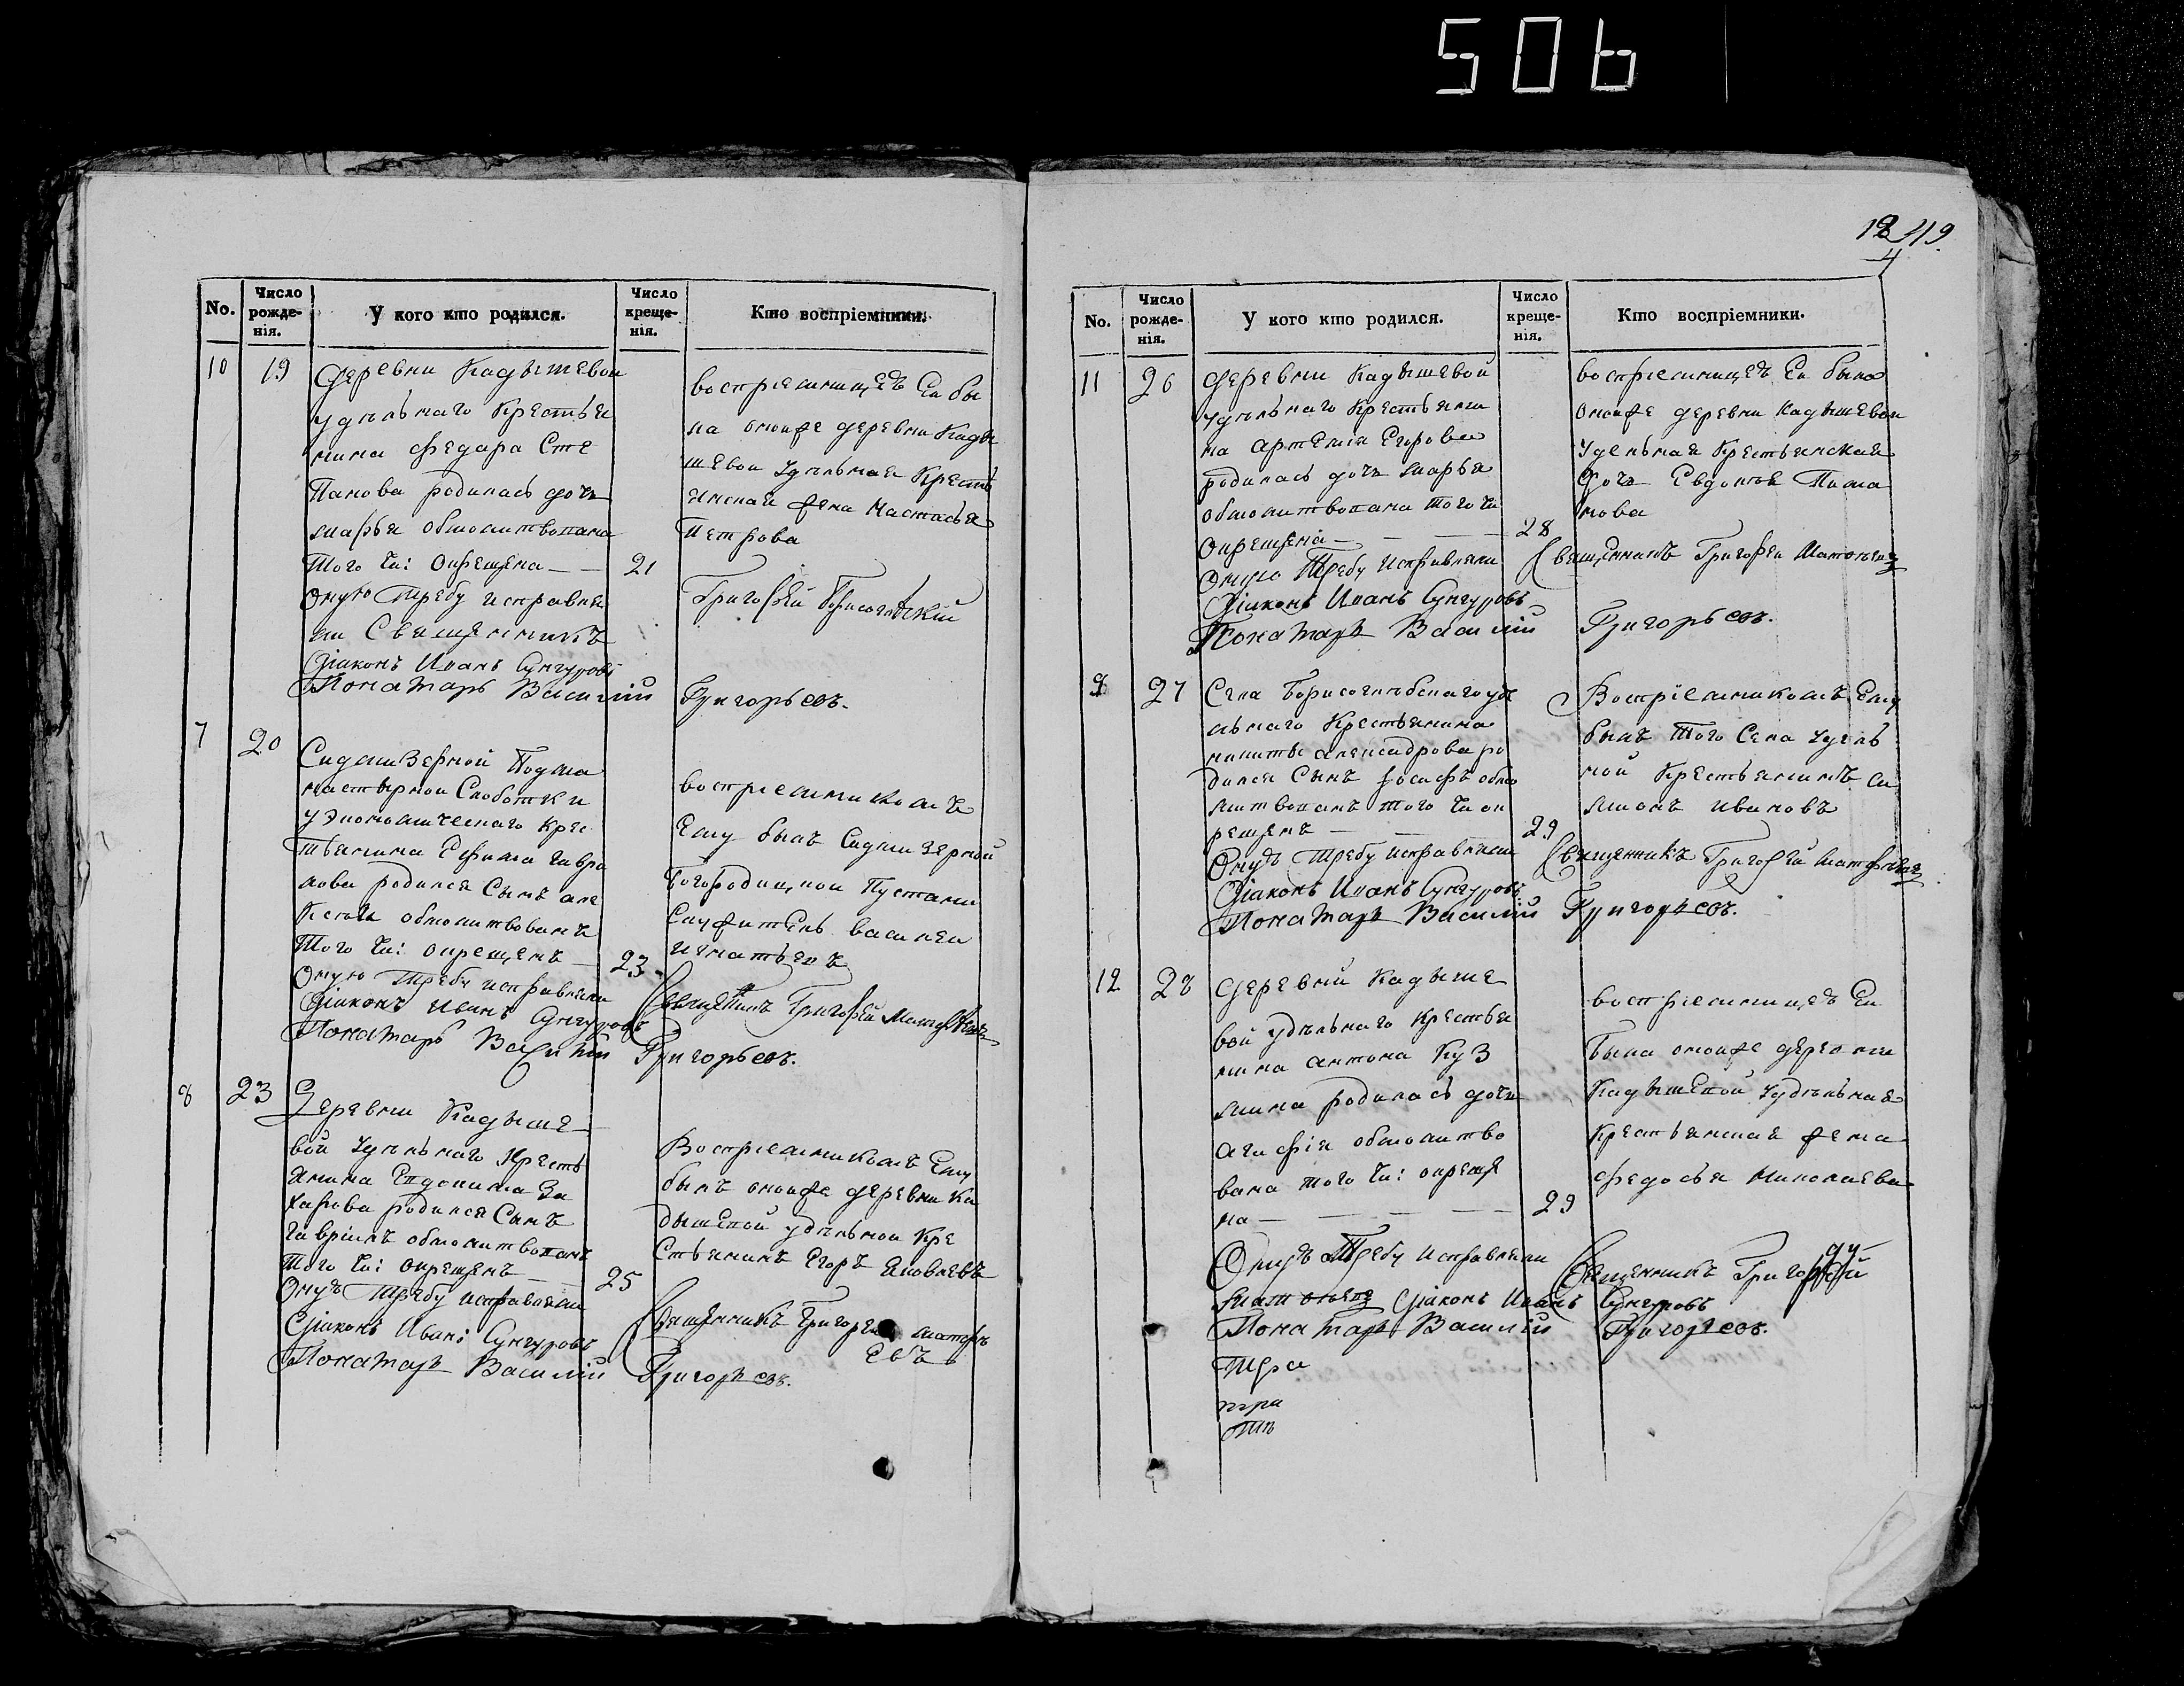 506
No.
Число рожде-нія.
У кого кто родился.
Число креще-нія.
Кто воспріемники.
10
19
деревни Кадышевои
удѣльнаго крестья
нина Федара Сте
панова родилась дочь
марья обмолитвована
того чи: окрещена
21
Оную требу исправля
ли Священникъ
Діаконъ Иванъ Сунгуровъ
Понамарь Василій
воспріемницеъ Еи бы
ла оноиже деревни Кады
шевои удѣльная Кресть
янская жена Настасья
Петрова
Григорьевъ.
7
20
Седмиезерной Подмо
настырной Слоботки
Экономическаго Крес
тьянина Ефима Гаври
лова родился Сынъ але
ксей обмолитвованъ
Того чи: окрещенъ
23
Оную требу исправляли
Діаконъ Иванъ Сунгуровъ
Понамарь Василій
воспріемникомъ
Ему былъ Седмиезерной
Богородицкои Пустани
Служитель василеи
игнатьевъ
Священникъ Григорей
Григорьевъ.
8
23
Деревни Кадыше
вой удѣльнаго Кресть
янина Евдокима За
харова родился Сынъ
гавріилъ обмолитвованъ
Того чи: окрещенъ
25
Онуъ требу исправляли
Діаконъ Иванъ Сунгуровъ
Понамарь Василій
Воспріемникомъ Ему
былъ оноиже деревни Ка
дышевои удѣльнои Кре
стьянинъ Егоръ Яковлевъ
Священникъ Григореи матфѣ
евъ
Григорьевъ.
119
4
No.
Число рожде-нія.
У кого кто родился.
Число креще-нія.
Кто воспріемники.
11
26
деревни Кадышевой
удѣльнаго Крестьяни
на артемія Егорова
родилась дочь марья
обмолитвована того чи
окрещена
28
Оную Требу исправляли
Діаконъ Иванъ Сунгуровъ
Понамарь Василій
воспріемницеъ Еи была
оноиже деревни кадышевои
удельная Крестьянская
дочь Евдотья
нова
Священникъ Григореи Матфѣевъ
Григорьевъ.
9
27
Села Борисоглѣбскаго удѣ
льнаго Крестьянина
никиты александрова ро
дился Сынъ Іосифъ обмо
литвованъ того чи ок
рещенъ
29
Онуъ требу исправляли
Діаконъ Иванъ Сунгуровъ
Понамарь Василій
Воспріемникомъ Ему
былъ Того Села удель
ной Крестьянинъ си
мионъ ивановъ
Священникъ Григорей матфѣевъ
Григорьевъ.
12
28
деревни Кадыше
вой удѣльнаго Крестья
нина антона Куз
мина родилась дочь
агафія обмолитво
вана того чи: окреще
на
29
Онуъ Требу исправляли
матфѣевъ Діаконъ Иванъ
Понамарь Василій
воспріемницеъ Еи
была оноиже деревни
Кадышевой удѣльная
Крестьянская жена
федосья Николаева
Священникъ Григорей
Сунгуровъ
Григорьевъ.